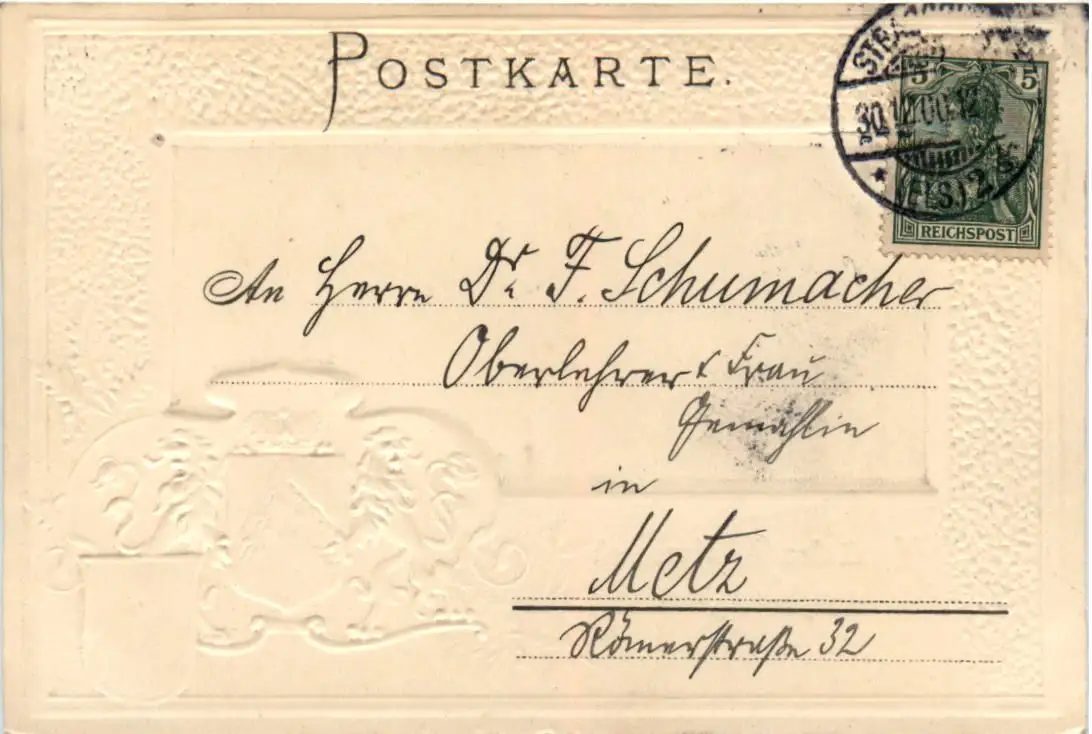 POSTKARTE.
5 5
30.12.00.12
(ELS.) 2 g
REICHSPOST
An Herrn Dr. F. Schumacher
Oberlehrer & Frau
Gemahlin
in
Metz
Römerstraße 32